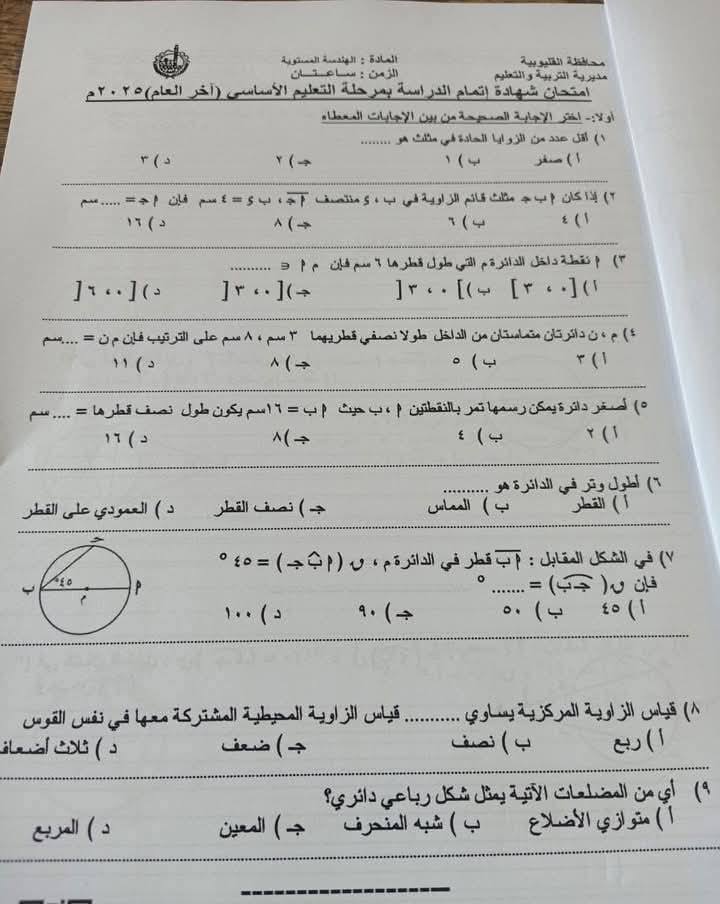 محافظة القليوبية
مديرية التربية والتعليم
المادة : الهندسة المستوية
الزمن : ساعـــتـــان
امتحان شهادة إتمام الدراسة بمرحلة التعليم الأساسي (آخر العام) ٢٠٢٥م
أولا:- اختر الإجابة الصحيحة من بين الإجابات المعطاه
١) أقل عدد من الزوايا الحادة في مثلث هو ........
أ ) صفر ب ) ١ جـ ) ٢ د ) ٣
٢) إذا كان ‮أ‬ ب جـ مثلث قائم الزاوية في ب ، ء منتصف أ جـ ، ب ء = ٤ سم فإن أ جـ = ..... سم
أ ) ٤ ب ) ٦ جـ ) ٨ د ) ١٦
٣) أ نقطة داخل الدائرة م التي طول قطرها ٦ سم فإن م أ ∈ ..........
أ ) [٠ ، ٣ [ ب )] ٠ ، ٣ [ جـ )[٠ ، ٣ [ د ) [٠ ، ٦ [
٤) م ، ن دائرتان متماستان من الداخل طولا نصفي قطريهما ٣ سم ، ٨ سم على الترتيب فإن م ن = ....سم
أ ) ٣ ب ) ٥ جـ ) ٨ د ) ١١
٥) أصغر دائرة يمكن رسمها تمر بالنقطتين أ ، ب حيث أ ب = ١٦سم يكون طول نصف قطرها = .... سم
أ ) ٢ ب ) ٤ جـ )٨ د ) ١٦
٦) أطول وتر في الدائرة هو ..........
أ ) القطر ب ) المماس جـ ) نصف القطر د ) العمودي على القطر
٧) في الشكل المقابل : أ ب قطر في الدائرة م ، ن (أ ب جـ ) = ٤٥ °
فإن ن( جـ ب) = ....... °
أ ) ٤٥ ب ) ٥٠ جـ ) ٩٠ د ) ١٠٠
جـ
ب
٤٥°
م
أ
٨) قياس الزاوية المركزية يساوي .......... قياس الزاوية المحيطية المشتركة معها في نفس القوس
أ ) ربع ب ) نصف جـ ) ضعف د ) ثلاث أضعاف
٩) أي من المضلعات الآتية يمثل شكل رباعي دائري؟
أ ) متوازي الأضلاع ب ) شبه المنحرف جـ ) المعين د ) المربع